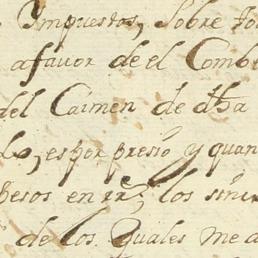 Impuestos, sobre to
a favor de el Comb
del Carmen de dha
do, es por presio y quan
pesos en rr.s los sinc
de los quales me d